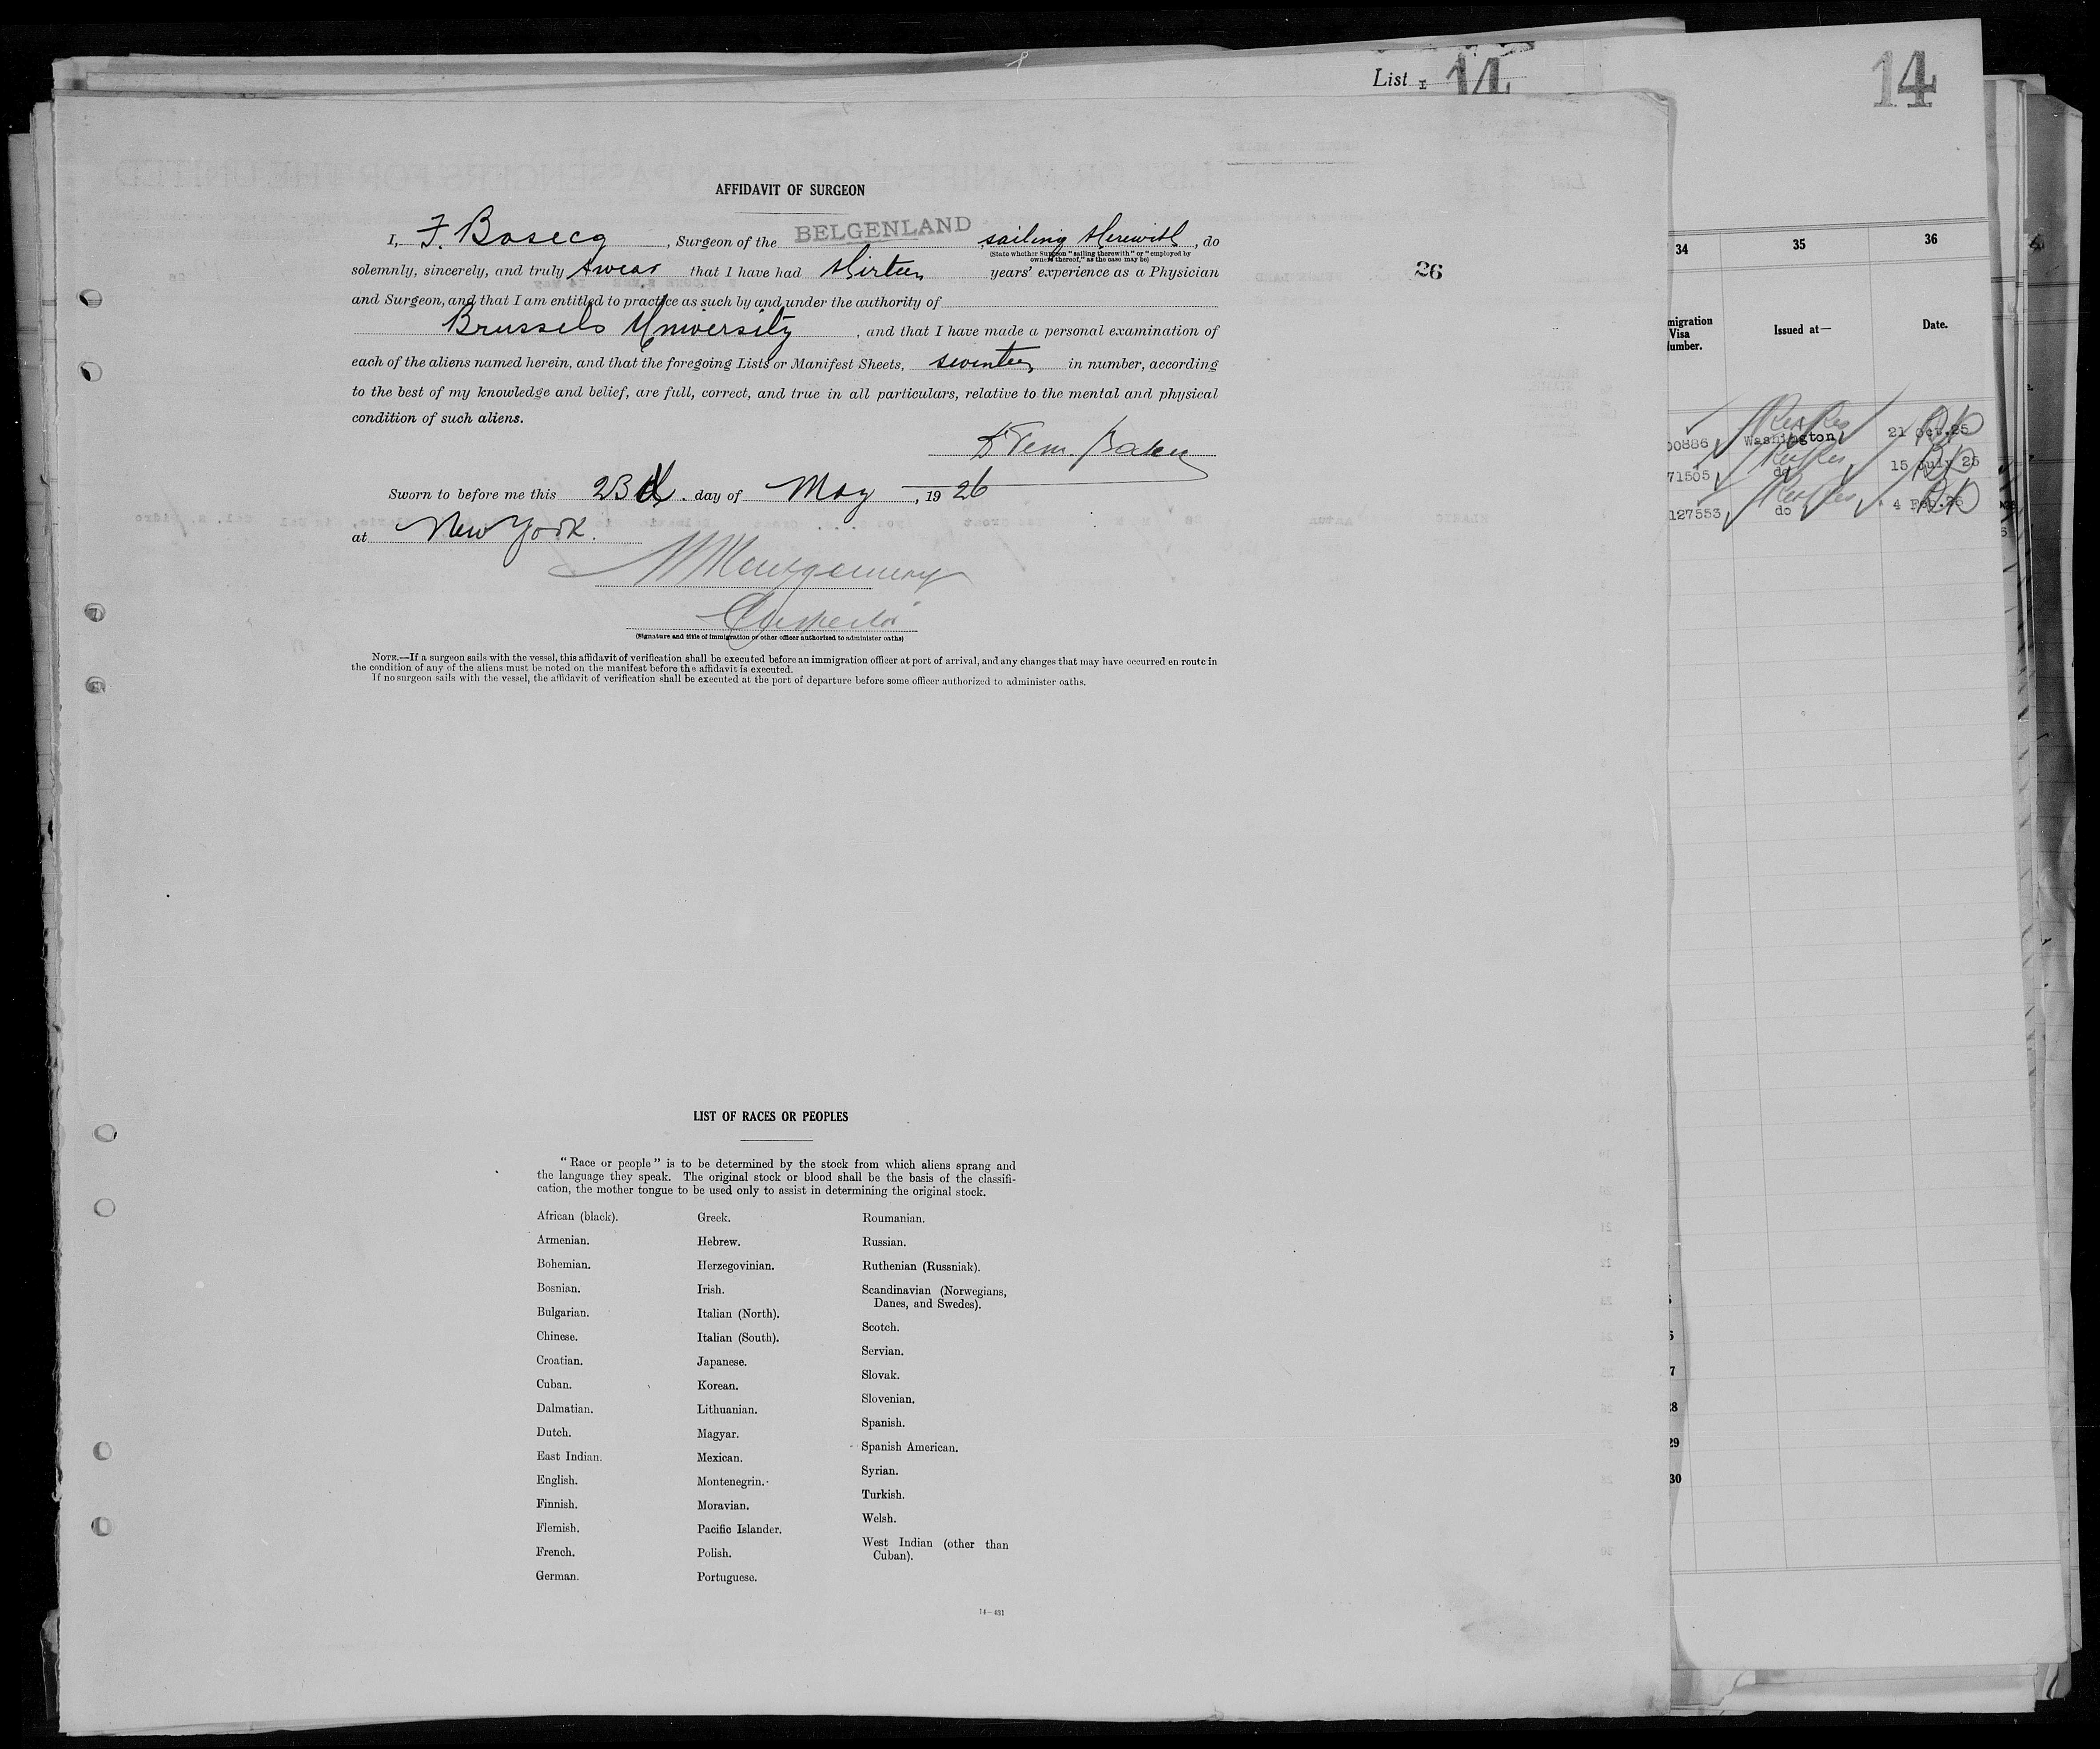 List 14
14
AFFIDAVIT OF SURGEON
I, F. Bosecq, Surgeon of the BELGENLAND sailing therewith, do
(State whether Surgeon "sailing therewith" or "employed by
owners thereof," as the case may be)
solemnly, sincerely, and truly swear that I have had thirteen years' experience as a Physician
26
and Surgeon, and that I am entitled to practice as such by and under the authority of
Brussels University, and that I have made a personal examination of
each of the aliens named herein, and that the foregoing Lists or Manifest Sheets, seventeen in number, according
to the best of my knowledge and belief, are full, correct, and true in all particulars, relative to the mental and physical
condition of such aliens.
Sworn to before me this 23d. day of May, 1926
at New York.
Montgomery
Inspector
(Signature and title of immigration or other officer authorized to administer oaths)
NOTE.—If a surgeon sails with the vessel, this affidavit of verification shall be executed before an immigration officer at port of arrival, and any changes that may have occurred en route in
the condition of any of the aliens must be noted on the manifest before the affidavit is executed.
If no surgeon sails with the vessel, the affidavit of verification shall be executed at the port of departure before some officer authorized to administer oaths.
LIST OF RACES OR PEOPLES
"Race or people" is to be determined by the stock from which aliens sprang and
the language they speak. The original stock or blood shall be the basis of the classifi-
cation, the mother tongue to be used only to assist in determining the original stock.
African (black).
Armenian.
Bohemian.
Bosnian.
Bulgarian.
Chinese.
Croatian.
Cuban.
Dalmatian.
Dutch.
East Indian.
English.
Finnish.
Flemish.
French.
German.
Greek.
Hebrew.
Herzegovinian.
Irish.
Italian (North).
Italian (South).
Japanese.
Korean.
Lithuanian.
Magyar.
Mexican.
Montenegrin.
Moravian.
Pacific Islander.
Polish.
Portuguese.
Roumanian.
Russian.
Ruthenian (Russniak).
Scandinavian (Norwegians,
Danes, and Swedes).
Scotch.
Servian.
Slovak.
Slovenian.
Spanish.
Spanish American.
Syrian.
Turkish.
Welsh.
West Indian (other than
Cuban).
14—431
34 35 36
migration
Visa
umber.
Issued at—
Date.
00886 Washington 21 Oct. 25
71505 do 15 July 25
127553 do 4 Feb. 26
7
28
29
30